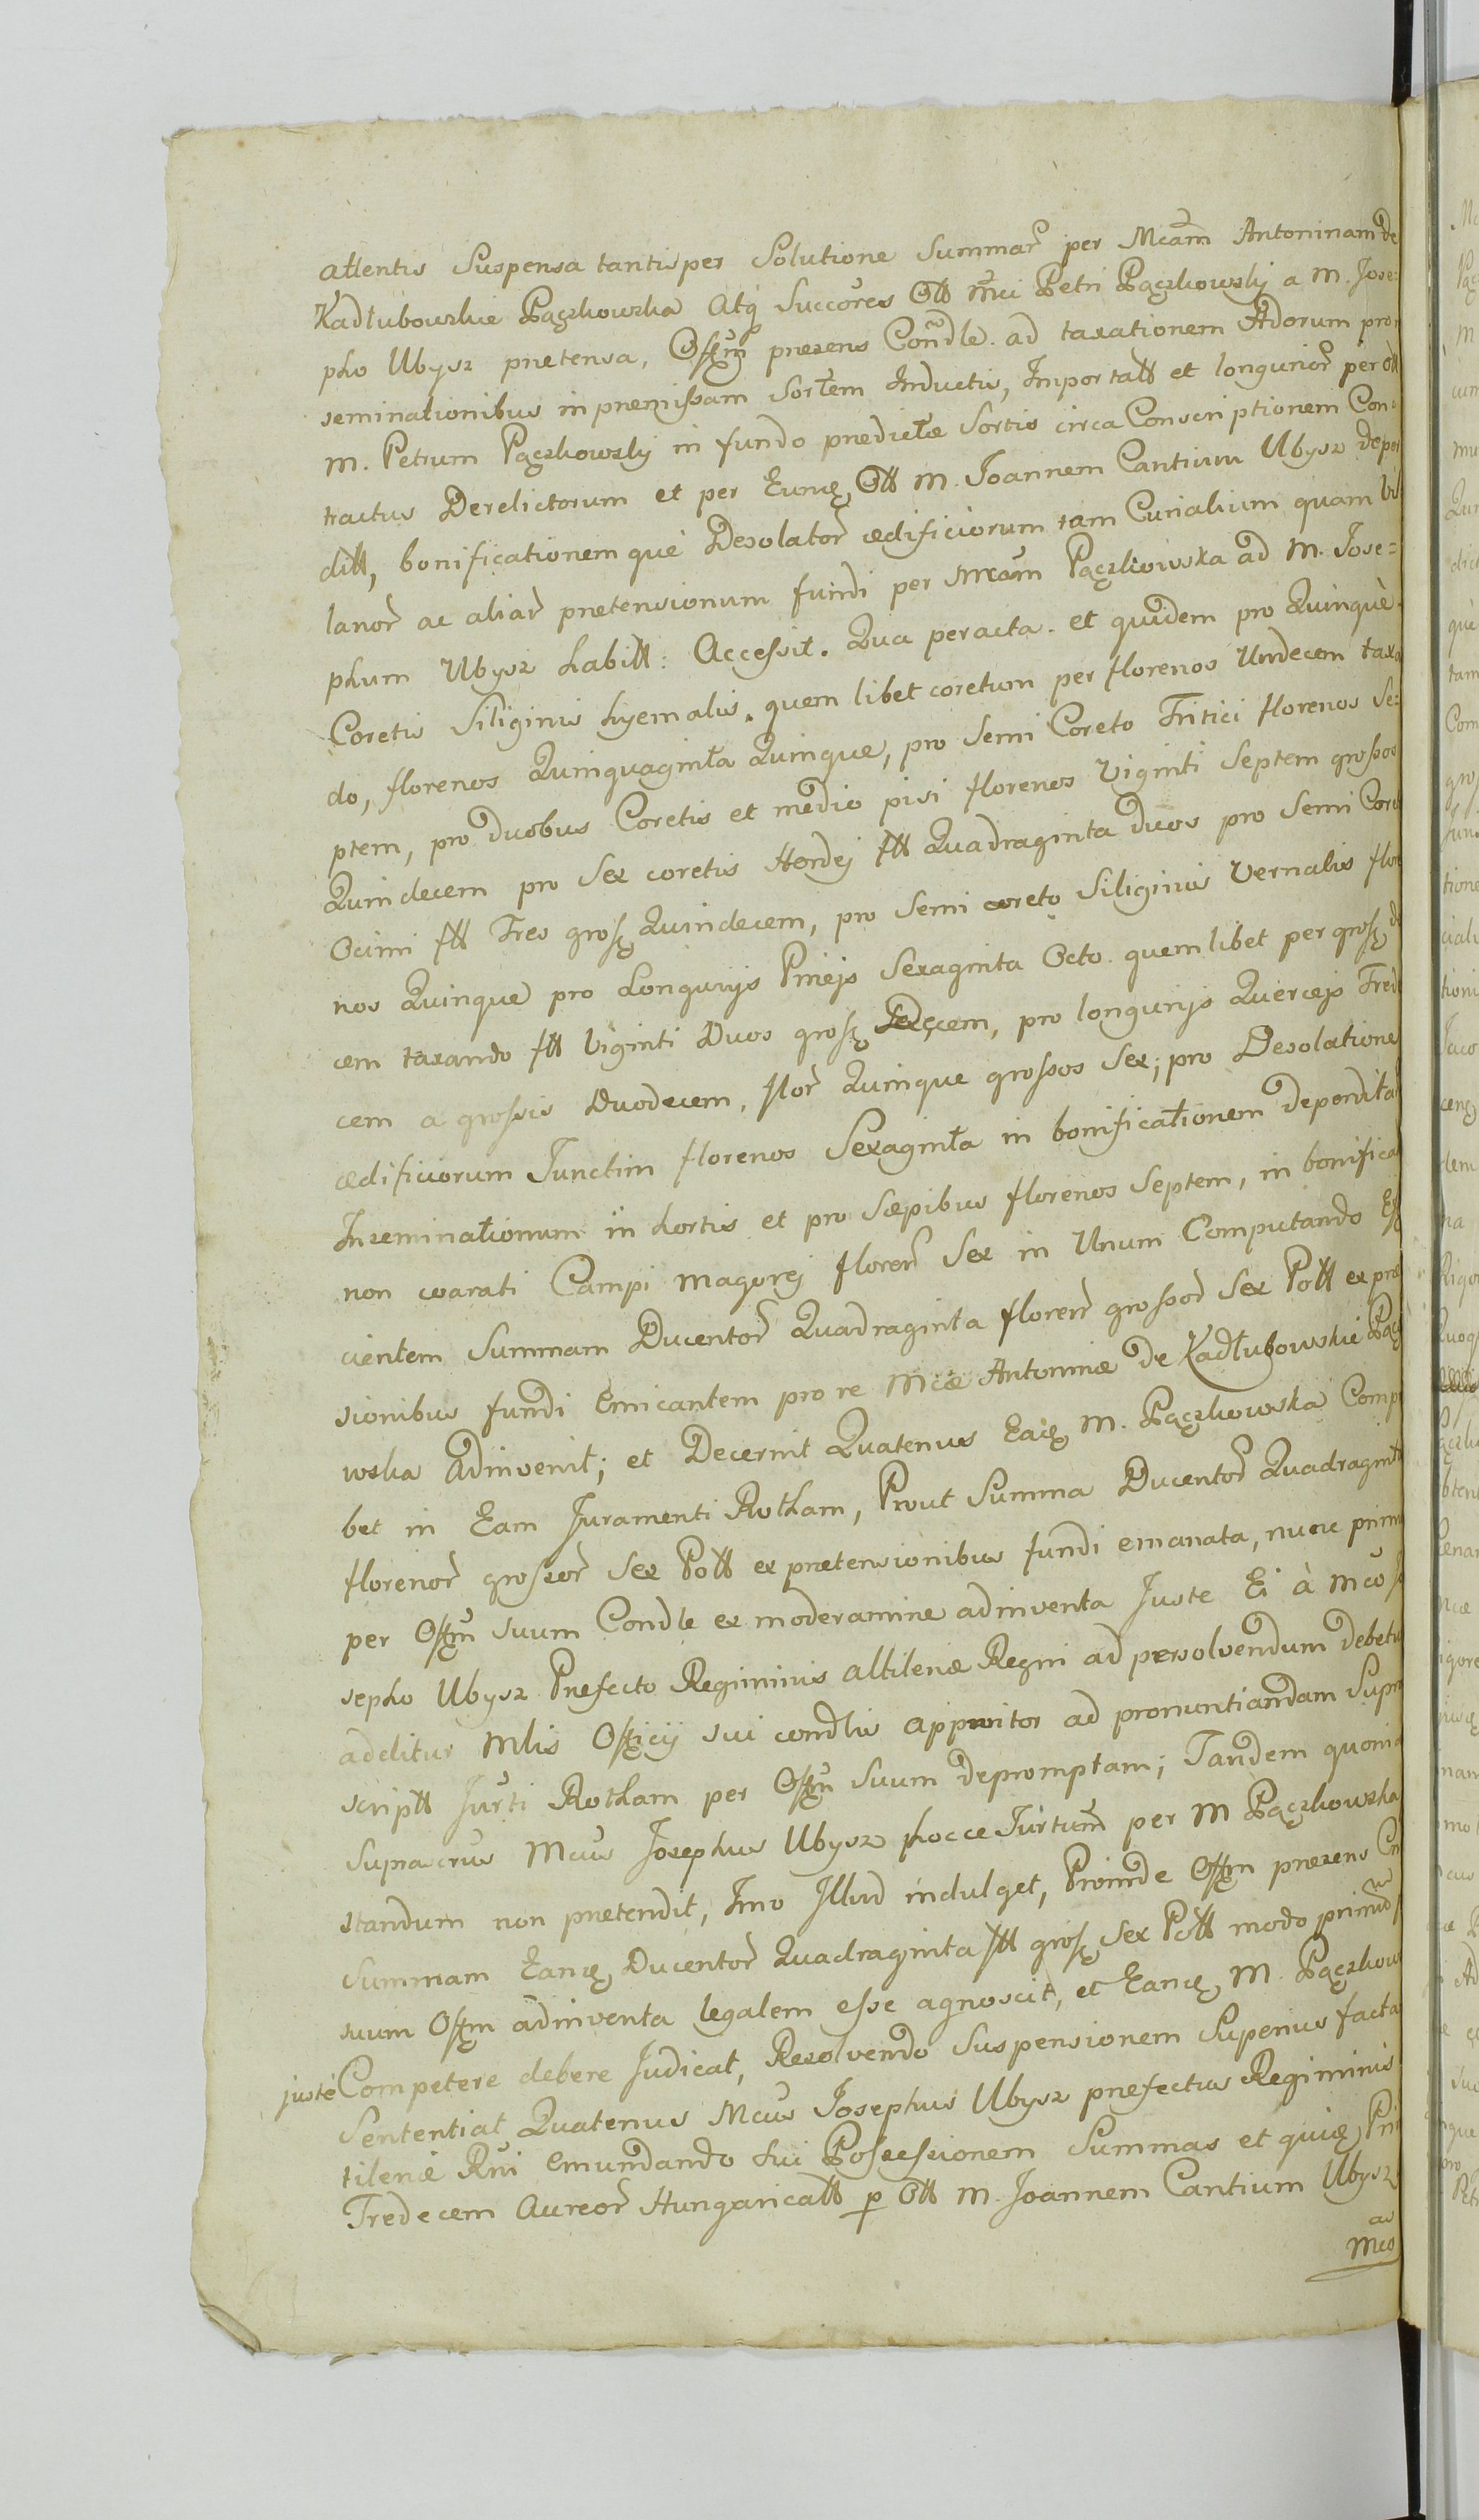 attentis Suspensa tantisper Solutione Summar per Mcam Antoninam de
Kadłubowskie Pączkowska Atq Succores Ott Mci Petri Pączkowskj a M. Jose=
pho Ubysz pnetensa, Offm pnezens Condle. ad taxationem Adorum pro
seminationibus in pnemissam Sortem Inductis, Importatt et longurior per Ott
M. Petrum Pączkowskj in fundo pnedictæ Sortis circa Conscriptionem Con-
tractus Derelictorum et per Eunę Ott M. Joannem Cantium Ubysz deper
ditt, bonificationem què Desolator ædificiorum tam Curialium quam Vil
lanor ac aliar pnetensionum fundi per Mcam Pączkowska ad M. Jose=
phum Ubysz habitt: Accessit. Qua peracta. et quidem pro Quinquè
Coretis Siliginis hyemalis. quem libet coretum per florenos Undecem taxa
do, florenos Quinquaginta Quinque, pro Semi Coreto Tritici florenos Se=
ptem, pro duobus Coretis et medio pisi florenos Viginti Septem grossos
Quindecem pro Sex coretis Hordej ftt Quadraginta duos pro Semi Core
Ocimi ftt Tres grosę Quindecem, pro Semi coreto Siliginis Vernalis flor
nos Quinque pro Longurijs Pinejs Sexaginta Octo. quem libet per grosę de
cem taxando ftt Viginti Duos grosę Sedecem, pro longurijs Quercejs Trede
cem a grossis Duodecem, flor Quinque grossos Sex; pro Desolatione
ædificiorum Junctim florenos Sexaginta in bonificationem deperdita
Inseminationum in hortis et pro Sæpibus florenos Septem, in bonifica
non coarati Campi Magorej floren Sex in Unum Computando Effi
cientem Summam Ducentor Quadraginta floren grossor Sex Pott ex præ
sionibus fundi Emicantem pro re Mcæ Antoninæ de Kadłubowskie Pącz
wska Adinvenit; et Decernit Quatenus Eadę M. Pączkowska Comp
bet in Eam Juramenti Rotham, Prout Summa Ducentor Quadragint
florenor grossor Sex Pott ex prætensionibus fundi emanata, nunc prim
per Offm suum Condle ex moderamine adinventa Juste Ei à Mco J
sepho Ubysz Pnefecto Regiminis altileriæ Regni ad persolvendum debetu
adelitur Mlis Officij sui condlis appnitor ad pronuntiandam Supra
scriptt Jurti Rotham per Offm suum depromptam; Tandem quonia
Suprascrus Mcus Josephus Ubysz hocce Jurtum per M Pączkowska
standum non pnetendit, Imo Illud indulget, Proinde Offm pnezens Cn
Summam Eanę Ducentor Quadraginta ftt grosę Sex Pott modo primo
suum Offm adinventa legalem esse agnoscit, et Eanę M. Pączkow
justè Competere debere Judicat, Resolvendo Suspensionem Supenius facta
Sententiat Quatenus Mcus Josephus Ubysz pnefectus Regiminis
tileriæ Rni Emundando sui Possessionem Summas et quię Pri
Tredecem Aureor Hungaricatt p Ott M. Joannem Cantium Ubysz
ac
Mco